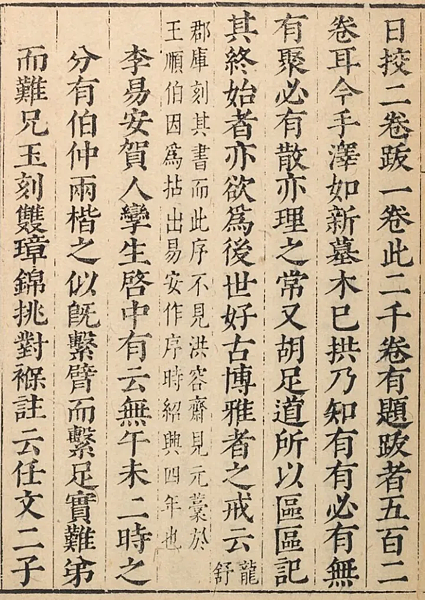 日挍二卷跋一卷此二千卷有題跋者五百二
卷耳今手澤如新墓木已拱乃知有有必有無
有聚必有散亦理之常又胡足道所以區區記
其終始者亦欲爲後世好古博雅者之戒云龍舒
郡庫刻其書而此序不見洪容齋見元藁於
王順伯因爲拈出易安作序時紹興四年也
李易安賀人孿生啓中有云無午未二時之
分有伯仲兩楷之似旣繫臂而繫足實難弟
而難兄玉刻雙璋錦挑對褓註云任文二子